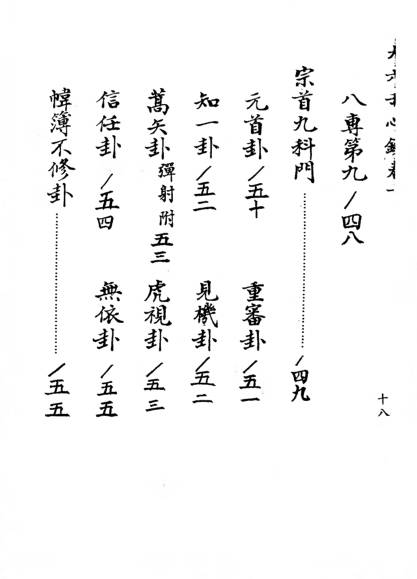 十八
八專第九 /四八
宗首九科門……………………/四九
元首卦 /五十 重審卦 /五一
知一卦 /五二 見機卦 /五二
蒿矢卦 彈射附 五三 虎視卦 /五三
信任卦 /五四 無依卦 /五五
幃簿不修卦……………………/五五